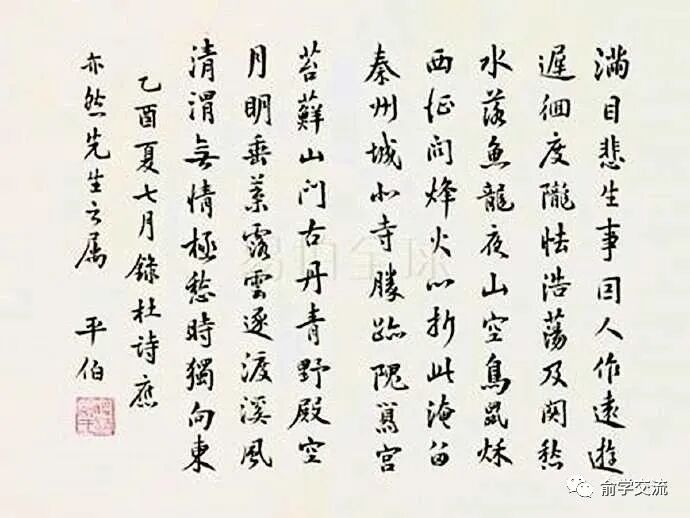 滿目悲生事因人作遠遊
遲徊度隴怯浩蕩及關愁
水落魚龍夜山空鳥鼠秋
西征問烽火心折此淹留
秦州城北寺勝跡隗囂宮
苔蘚山門古丹青野殿空
月明垂葉露雲逐渡溪風
清渭無情極愁時獨向東
乙酉夏七月錄杜詩應
亦然先生之屬 平伯
易拍全球
俞学交流